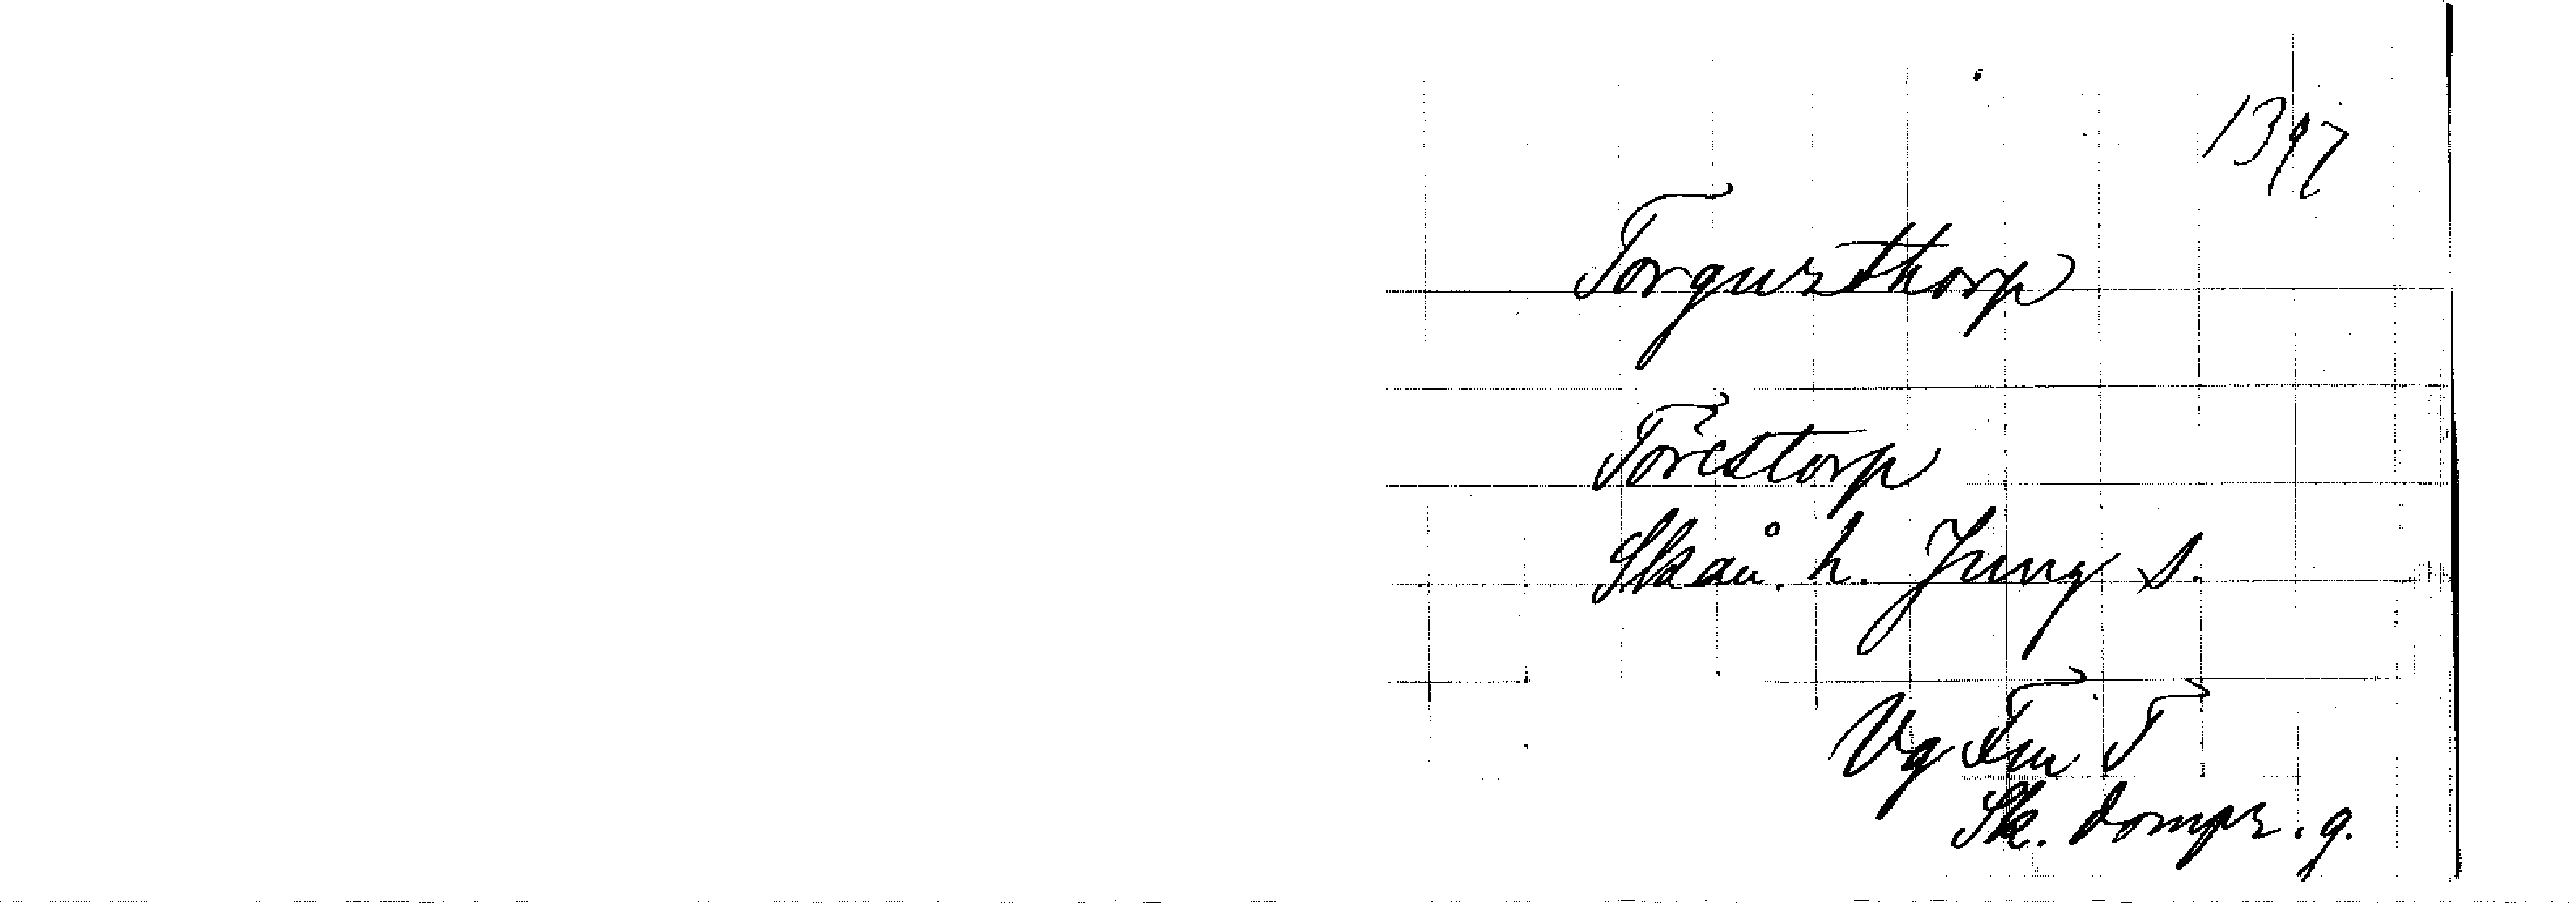 1397
Torgursthorp
Torestorp
Skån. h. Jung s.
Vg Fm T
Sk. dompr. g.